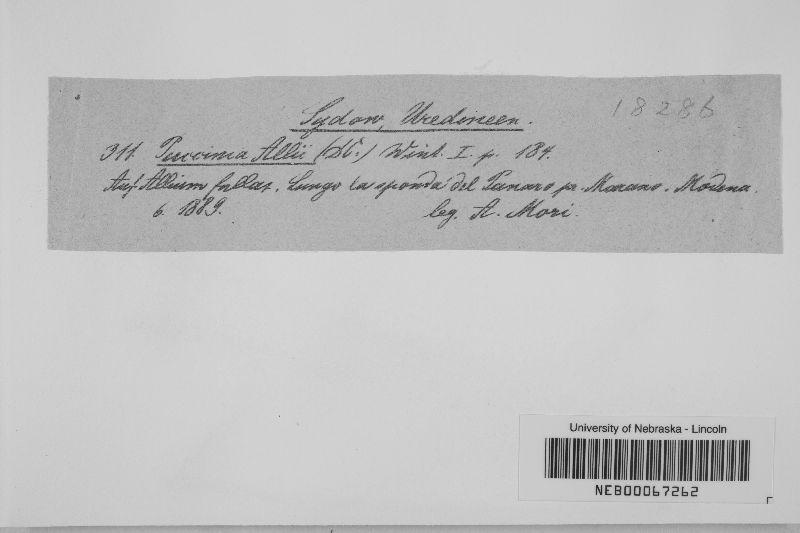 Sydow, Uredineen.
18286
311. Puccinia Allii (DC.) Wint. I. p. 184.
Auf Allium fallax. Lungo la sponda del Panaro pr. Marano. Modena.
6. 1889. leg. A. Mori.
University of Nebraska - Lincoln
NEB00067262